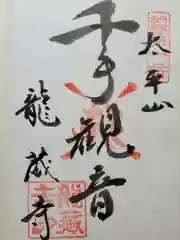 太平山
千手觀音
龍蔵寺